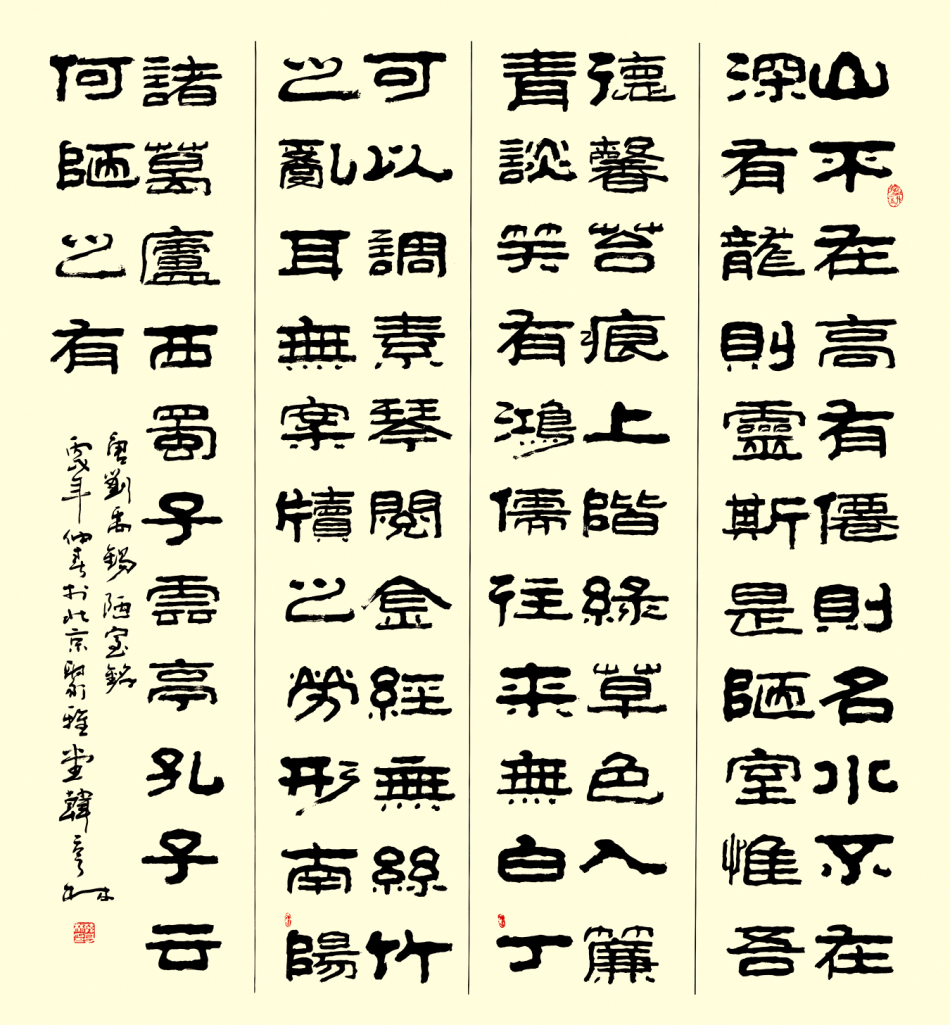 山不在高有僊則名水不在
深有龍則靈斯是陋室惟吾
德馨苔痕上階綠草色入簾
青談笑有鴻儒往来無白丁
可以調素琴閱金經無絲竹
之亂耳無案牘之勞形南陽
諸葛廬西蜀子雲亭孔子云
何陋之有
唐劉禹錫陋室銘
年仲春於北京聚雅堂韓亨林